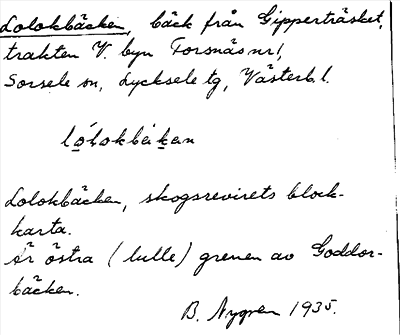 Lolokbäcken, bäck från Gippertträsket,
trakten V. byn Forsnäs nr 1,
Sorsele sn, Lycksele tg, Västerb. l.
lólokbäkan
Lolokbäcken, skogsrevirets block-
karta.
Är östra (lulle) grenen av Goddor-
bäcken.
B. Nygren 1935.